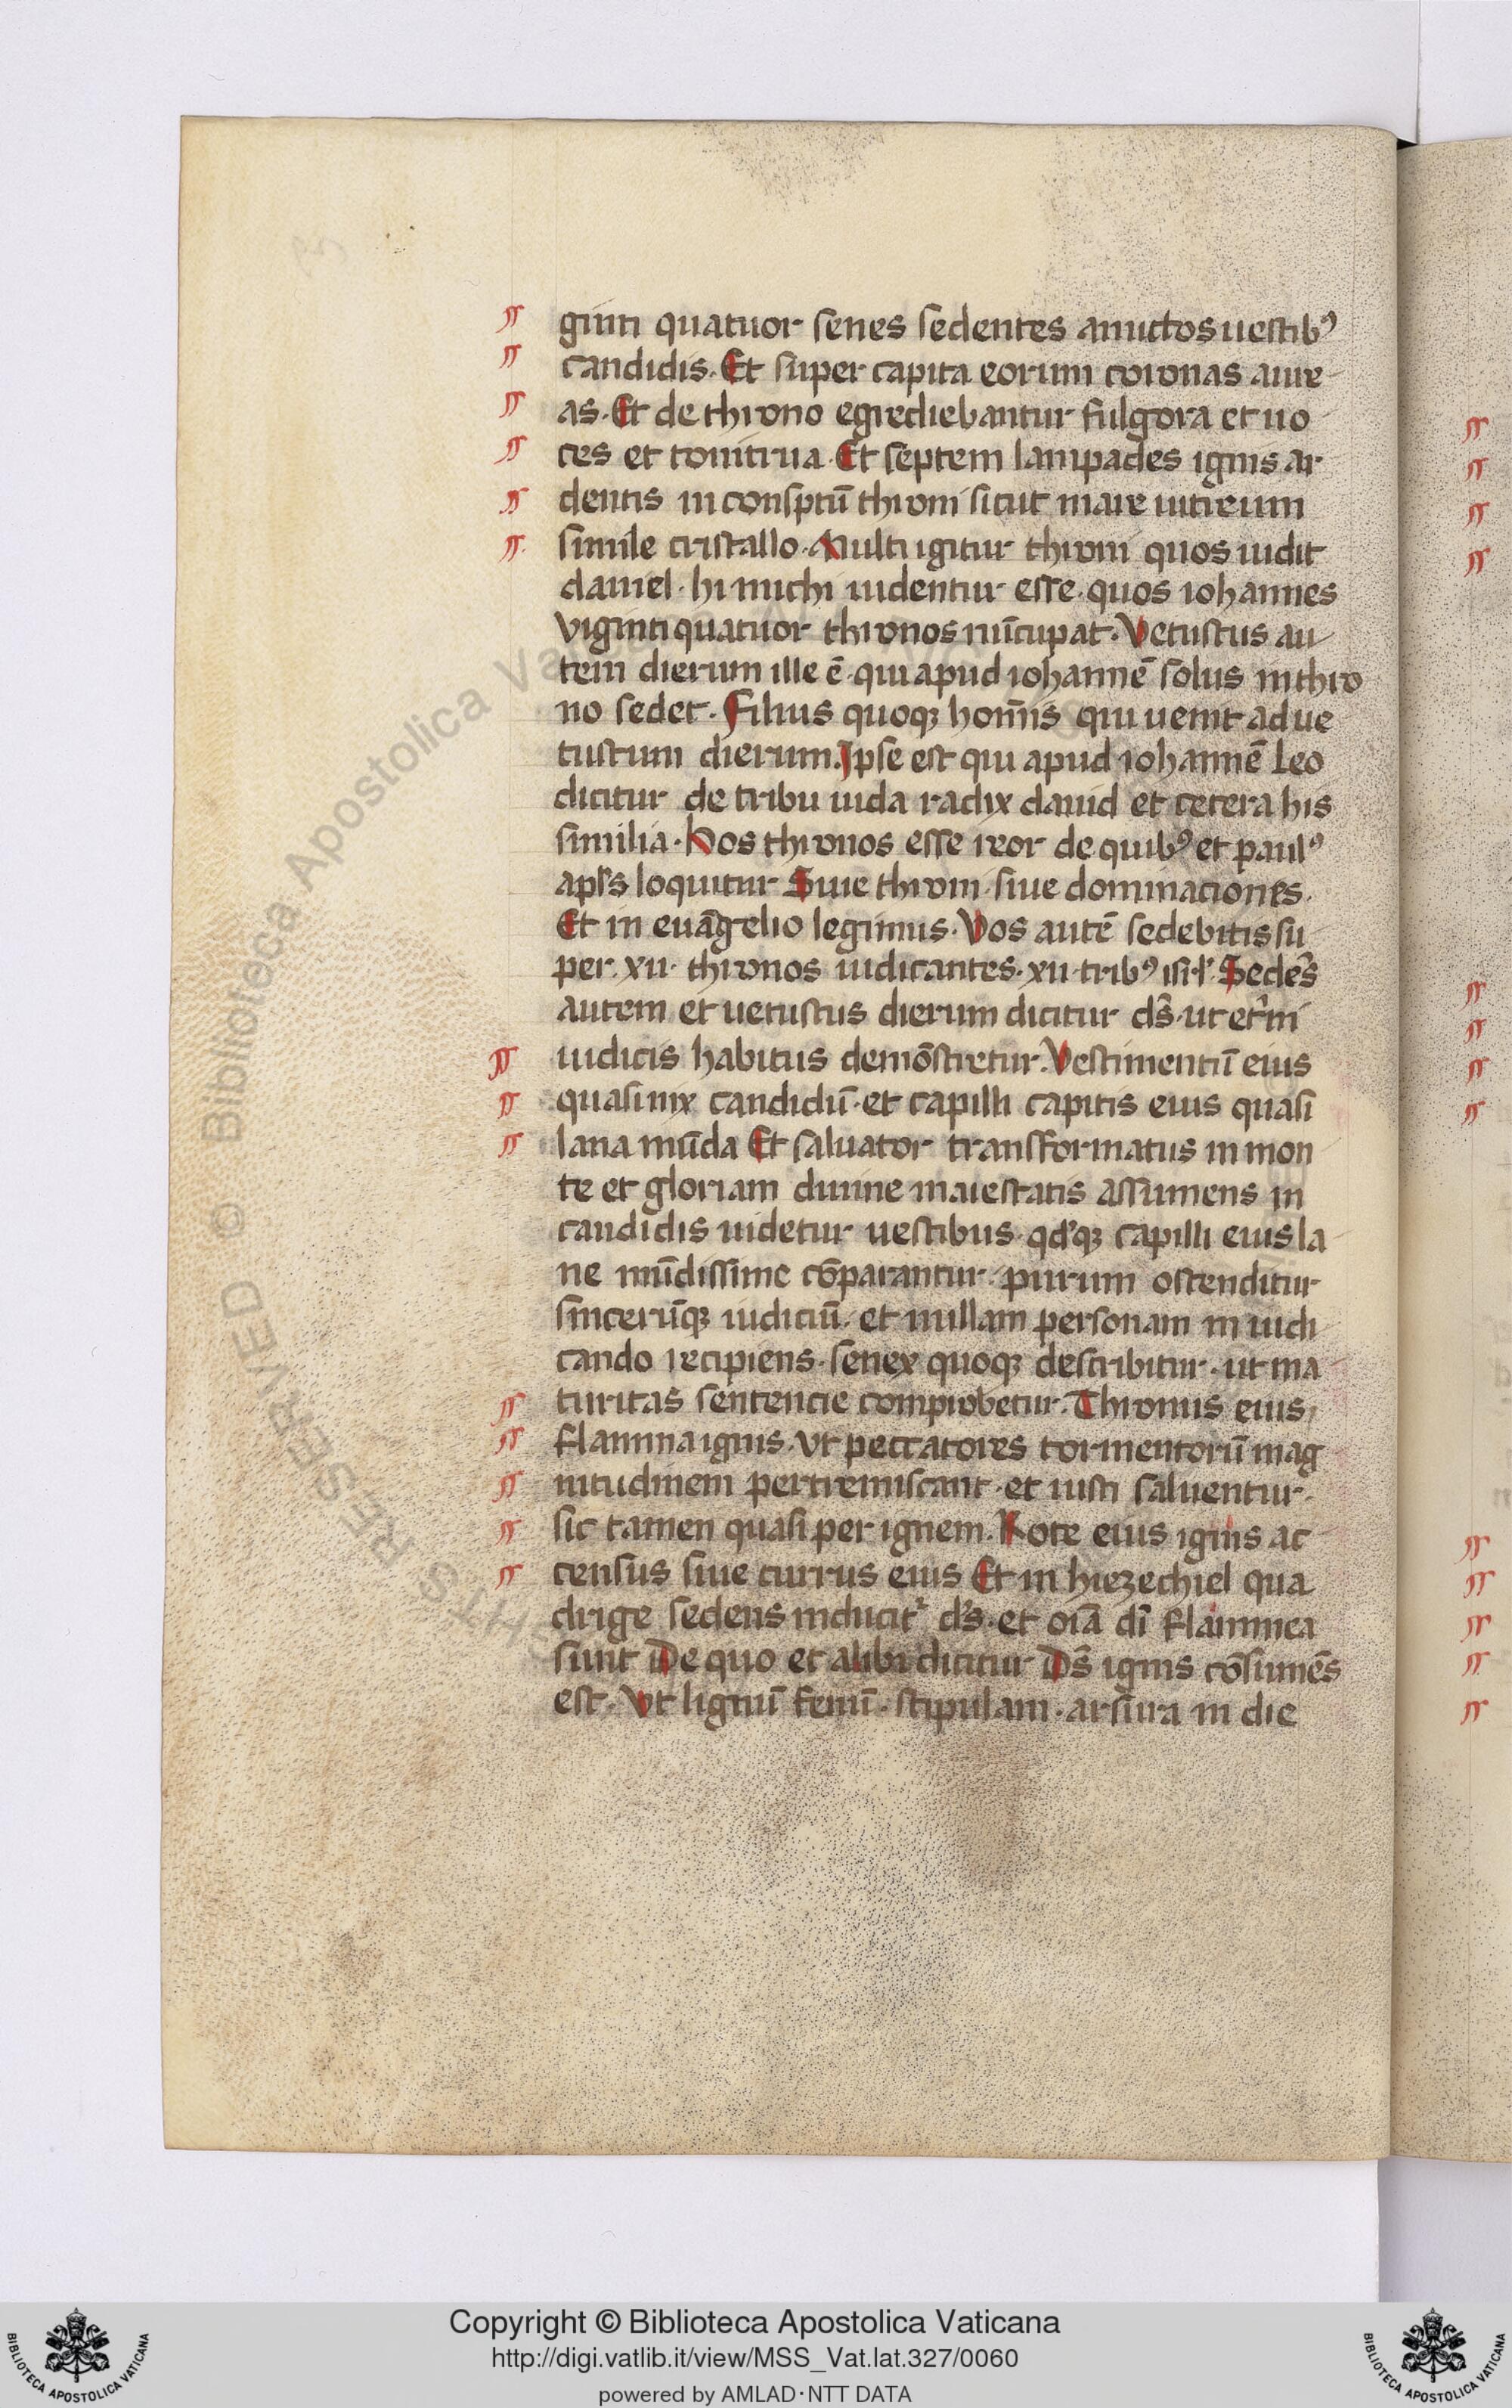 ginti quatuor senes sedentes amictos uestibꝰ
candidis. Et super capita eorum coronas aure
as. Et de throno egrediebantur fulgora et uo
ces et tonitrua. Et septem lampades ignis ar
dentis in conspctū throni sicut mare uitreum
simile cristallo. Multi igitur throni quos uidit
daniel. hi michi uidentur esse. quos iohannes
viginti quatuor thronos nūcupat. Vetustus au
tem dierum ille ē. qui apud iohannē solus in thro
no sedet. Filius quoqꝫ homīs qui uenit ad ue
tustum dierum. Ipse est qui apud iohannē leo
dicitur de tribu iuda radix dauid et cetera his
similia. Hos thronos esse reor de quibꝰ et paulꝰ
apl's loquitur Siue throni. siue dominaciones.
Et in euāgelio legimus. Vos autē sedebitis su
per. xii. thronos iudicantes. xii. tribꝰ isr'l'. Sedēs
autem et uetustus dierum dicitur ds̄. ut et'ni
iudicis habitus demōstretur. Vestimentū eius
quasi nix candidū. et capilli capitis eius quasi
lana mūda Et saluator transformatus in mon
te et gloriam diuine maiestatis assumens in
candidis uidetur uestibus. qd'qꝫ capilli eius la
ne mūdissime cōparantur. purum ostenditur
sincerūqꝫ iudiciū. et nullam personam in iudi
cando recipiens. senex quoqꝫ describitur. ut ma
turitas sentencie comprobetur. Thronus eius
flamma ignis. Vt peccatores tormentorū mag
nitudinem pertremiscant. et iusti saluentur.
sic tamen quasi per ignem. Rote eius ignis ac
census siue currus eius Et in hiezechiel qua
drige sedens inducit' d's. et oīa dī flammea
sunt De quo et alibi dicitur Ds̄ ignis cōsumēs
est. Vt lignū fenū. stipulam. arsura in die
Copyright © Biblioteca Apostolica Vaticana
http://digi.vatlib.it/view/MSS_Vat.lat.327/0060
powered by AMLAD·NTT DATA